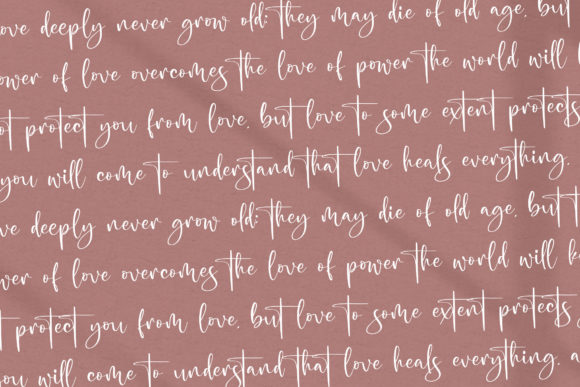 ove deeply never grow old; they may die of old age, but
ower of love overcomes the love of power the world will
ot protect you from love, but love to some extent protects
you will come to understand that love heals everything,
ve deeply never grow old; they may die of old age, but t
wer of love overcomes the love of power the world will k
t protect you from love, but love to some extent protects
ou will come to understand that love heals everything, a